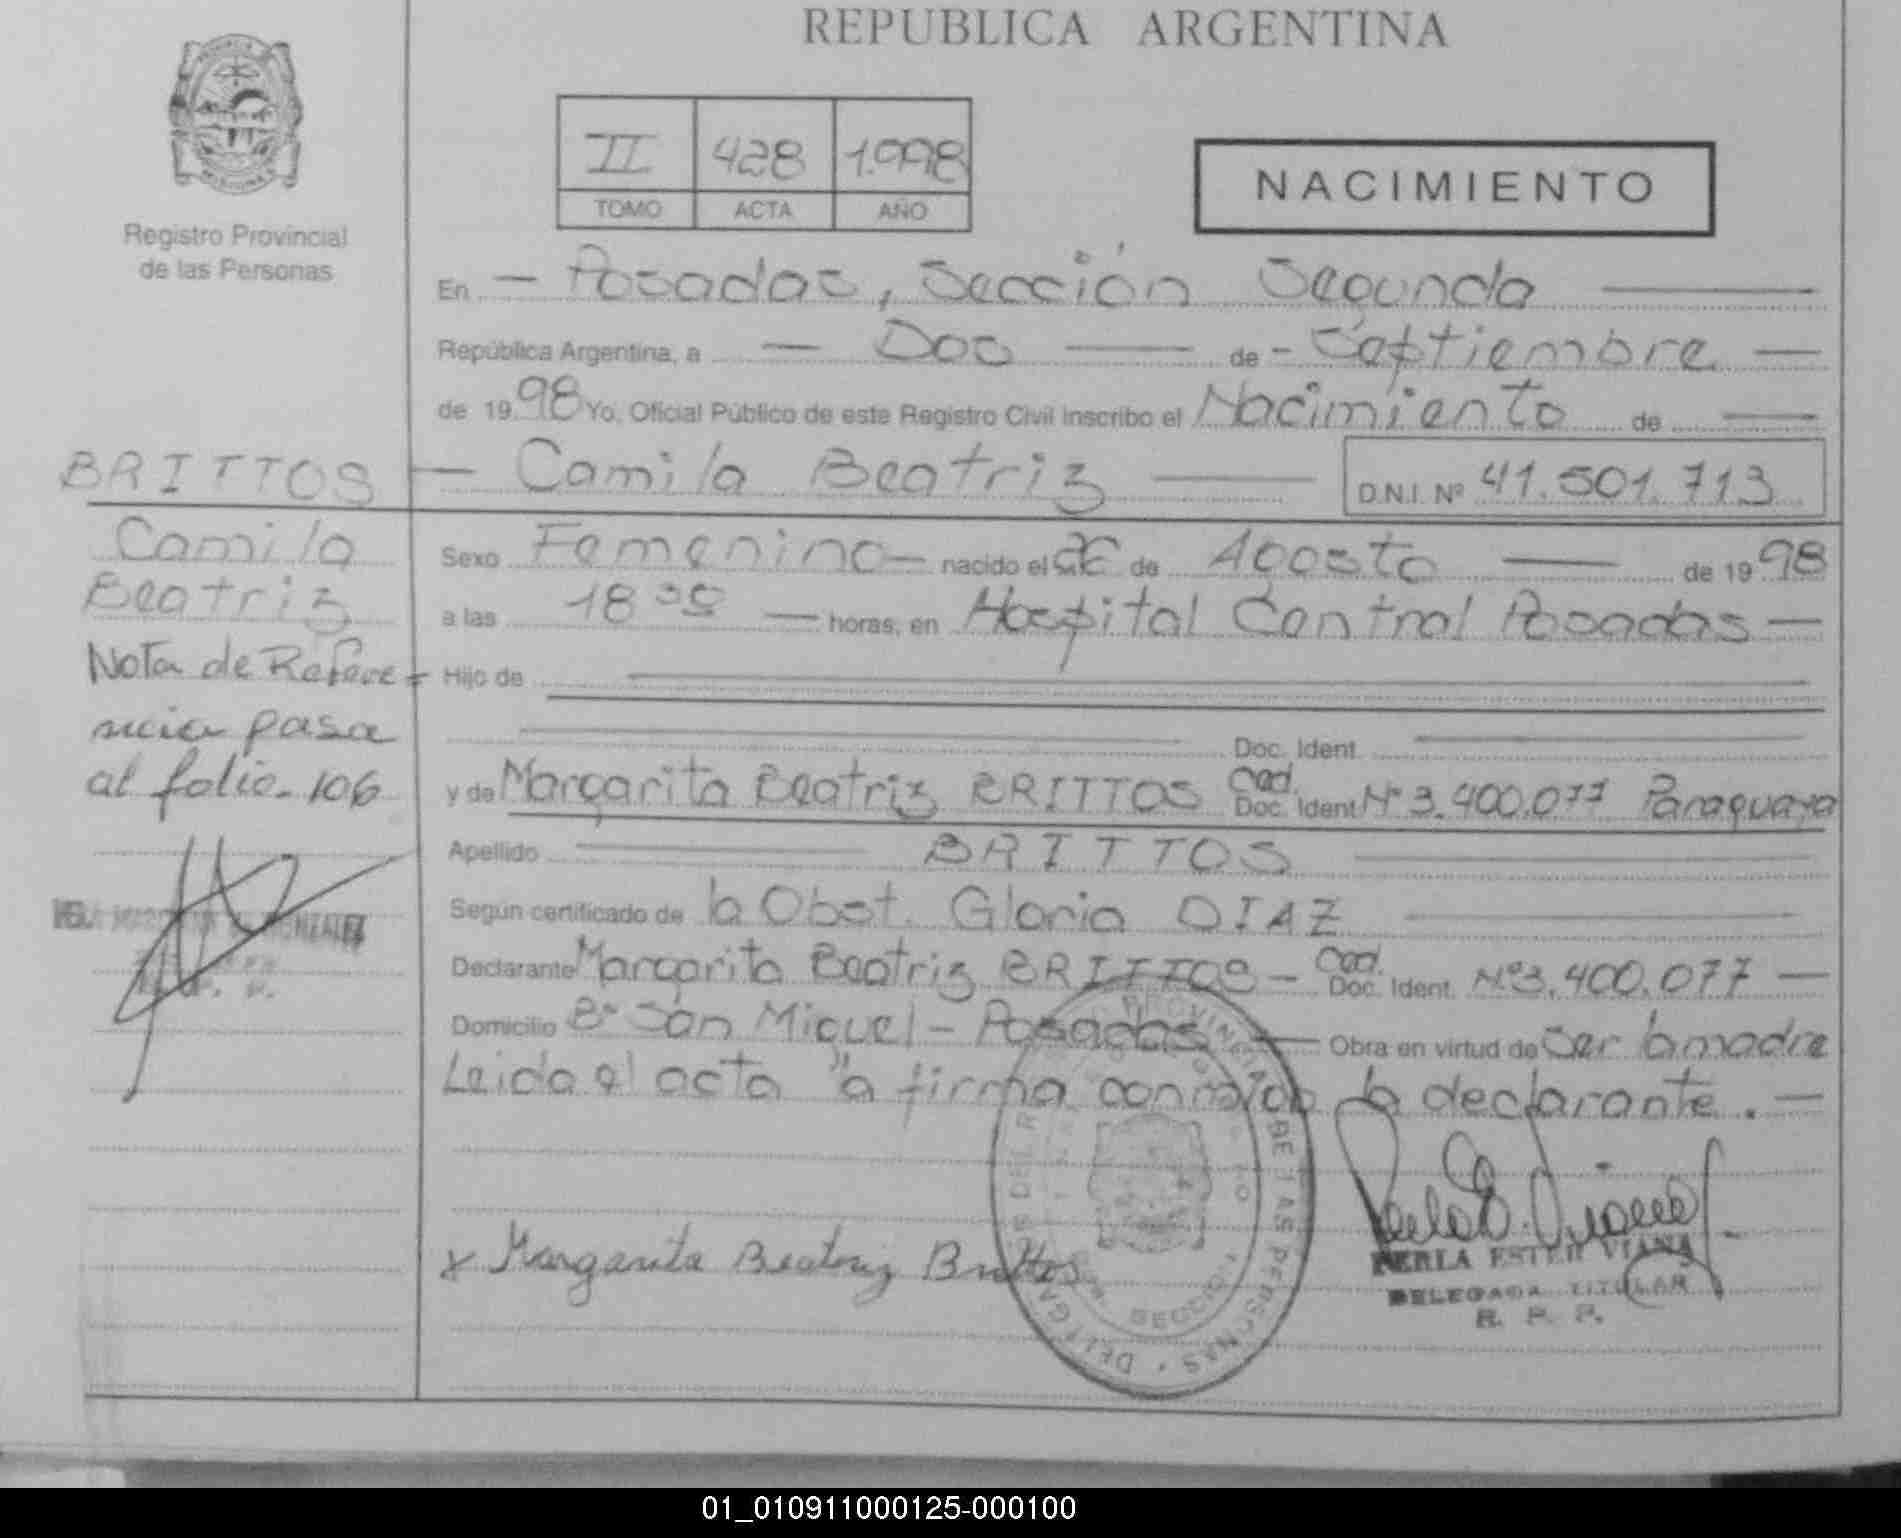 REPUBLICA ARGENTINA
MISIONES
Registro Provincial
de las Personas
II 428 1.998
TOMO ACTA AÑO
NACIMIENTO
En — Posadas, Sección Segunda —
República Argentina, a — Dos — de - Septiembre —
de 1998 Yo, Oficial Público de este Registro Civil Inscribo el Nacimiento de —
— Camila Beatriz — D.N.I. Nº 41.501.713
BRITTOS
Camila
Beatriz
Nota de Refere=
ncia pasa
al folio- 106
Sexo Femenino — nacido el de Agosto — de 1998
a las 18 — horas, en Hospital Central Posadas —
Hijo de
Doc. Ident.
y de Margarita Beatriz BRITTOS Ced. Doc. Ident Nº 3.400.077 Paraguaya
Apellido BRITTOS
Según certificado de la Obst. Gloria DIAZ
Declarante Margarita Beatriz BRITTOS — Ced. Doc. Ident. Nº 3.400.077 —
Domicilio Bº San Miguel - Posadas — Obra en virtud de Ser la madre
Leida el acta la firma conmigo la declarante. —
x Margarita Beatriz Brittos
PERLA ESTER VIANA
DELEGADA TITULAR
R. P. P.
01_010911000125-000100